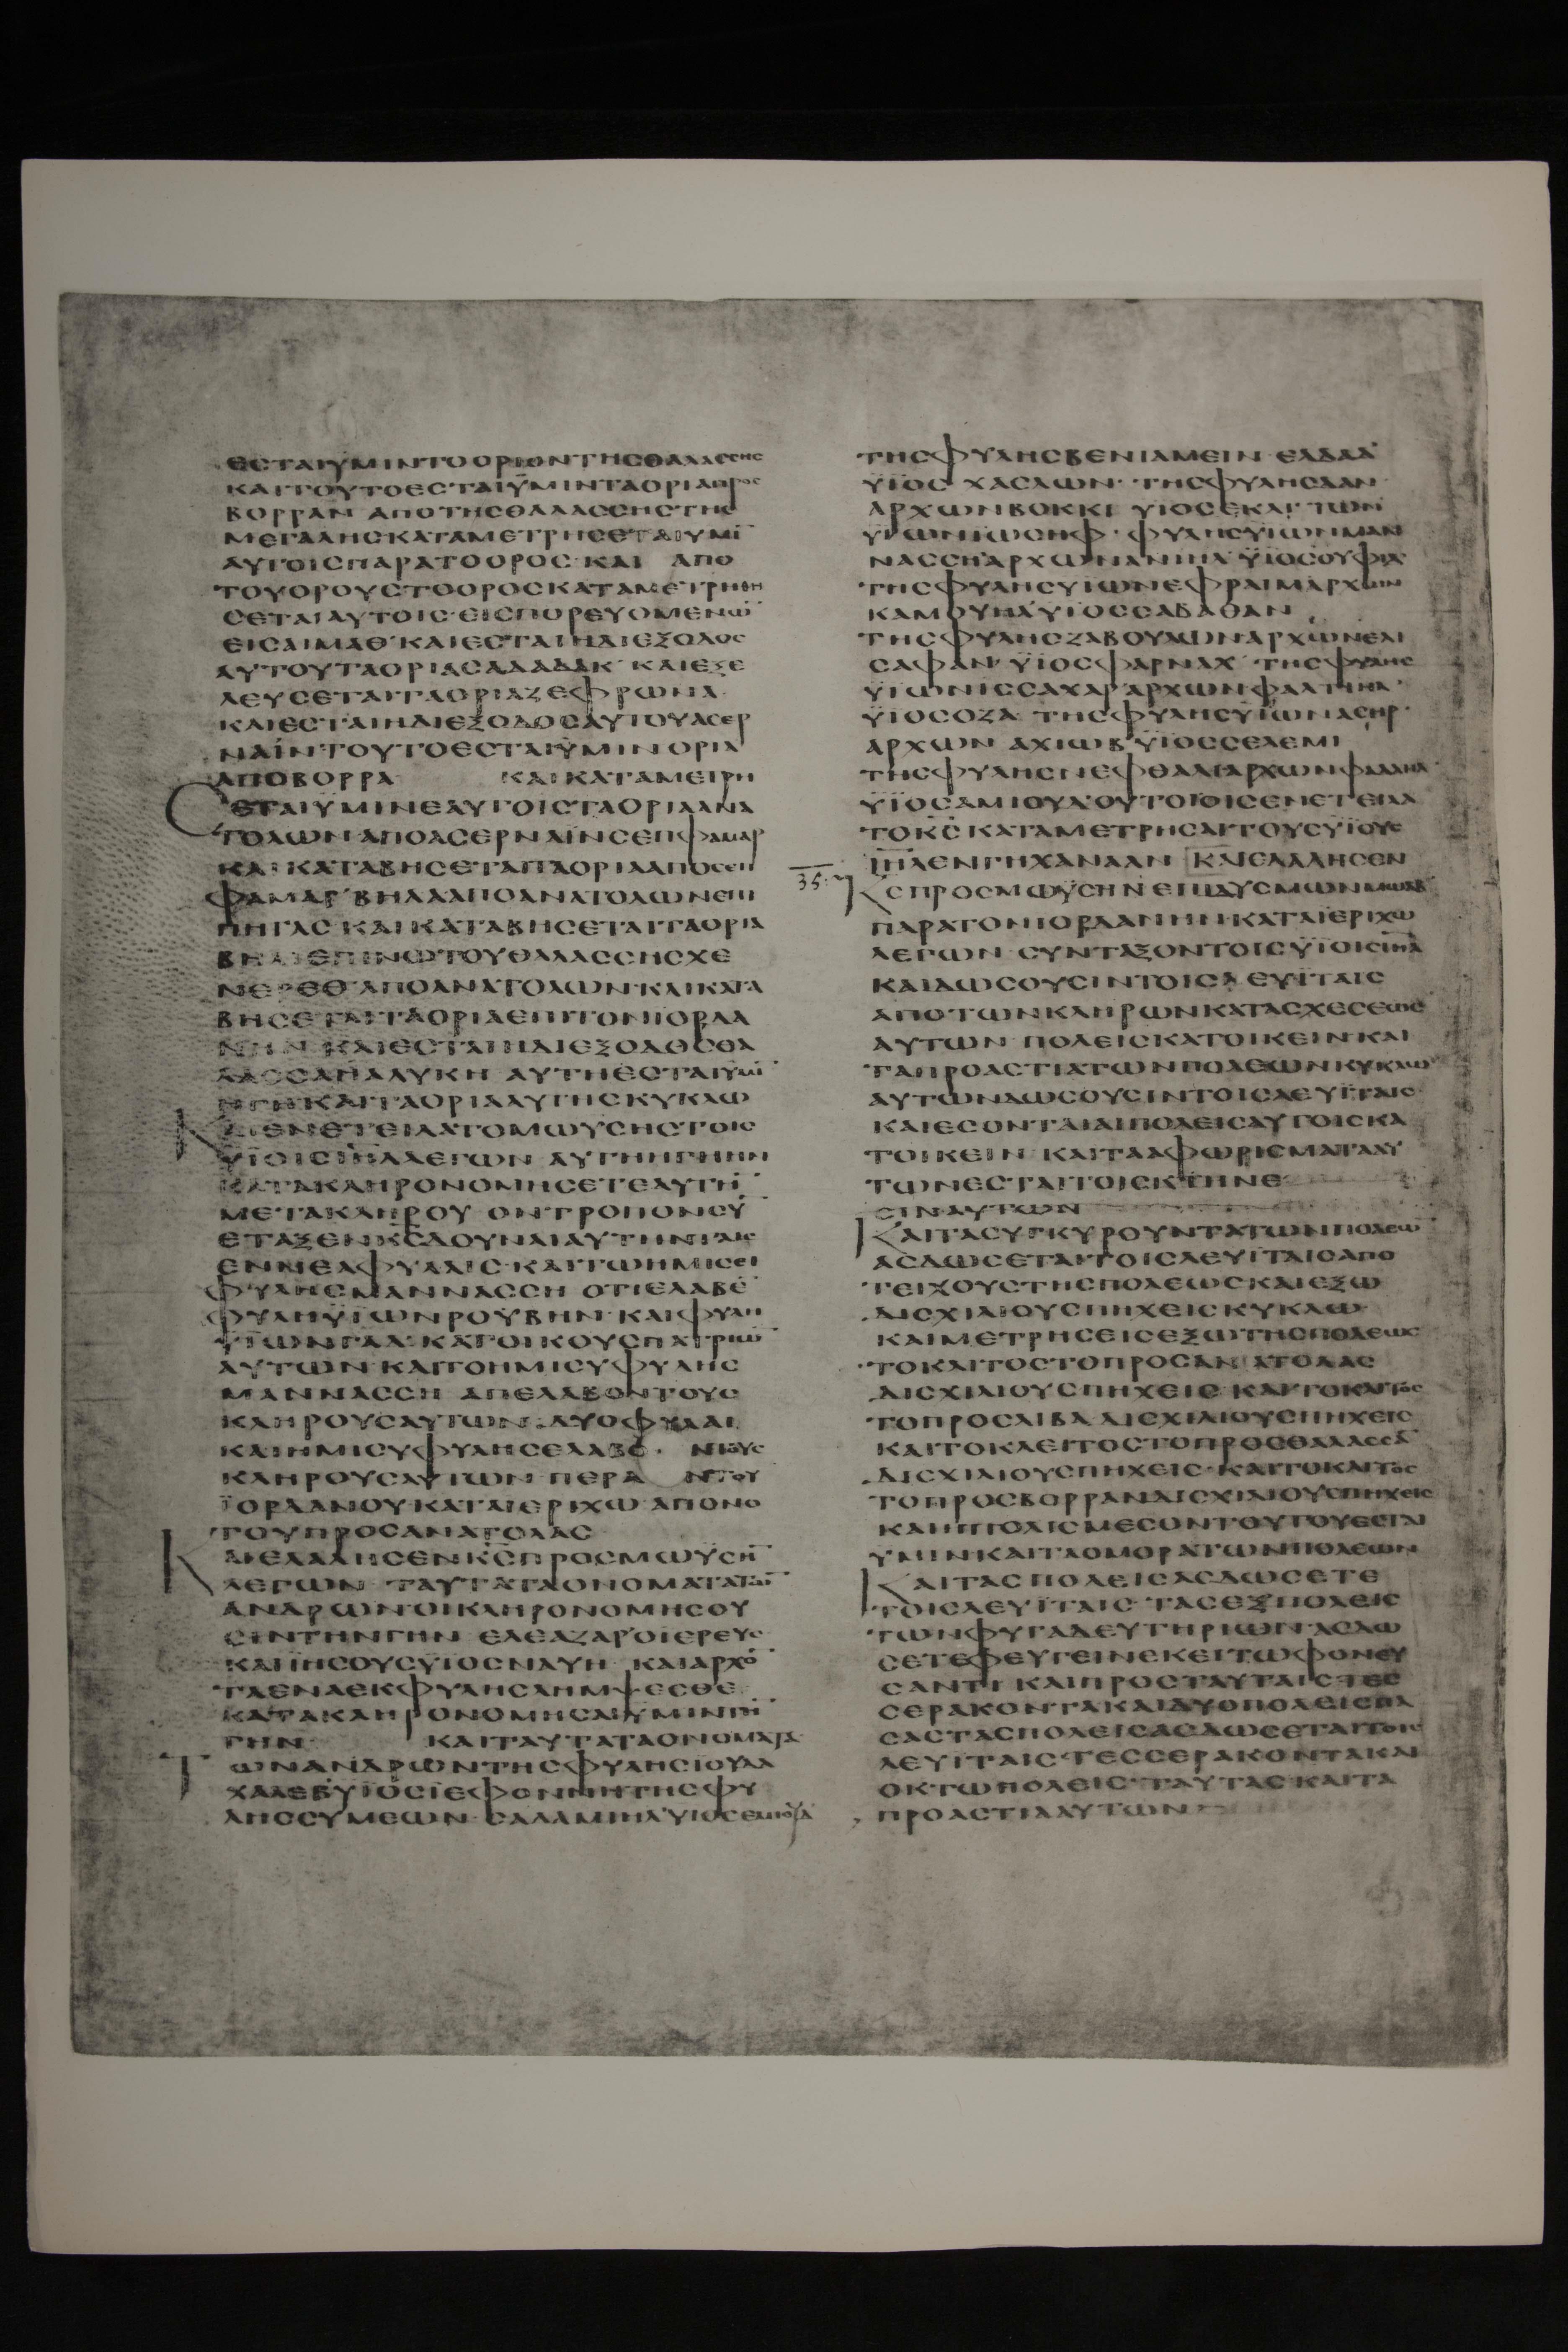 ΕСΤΑΙΫΜΙΝΤΟΟΡΙΟΝΤΗСΘΑΛΑССΗС
ΚΑΙΤΟΥΤΟΕСΤΑΙΫΜΙΝΤΑΟΡΙΑΠΡΟС
ΒΟΡΡΑΝ ΑΠΟΤΗСΘΑΛΑССΗСΤΗС
ΜΕΓΑΛΗСΚΑΤΑΜΕΤΡΗСΕΤΑΙΥΜΙ̅
ΑΥΤΟΙСΠΑΡΑΤΟΟΡΟС·ΚΑΙ ΑΠΟ
ΤΟΥΟΡΟΥСΤΟΟΡΟСΚΑΤΑΜΕΤΡΗΘΗ
СΕΤΑΙΑΥΤΟΙС·ΕΙСΠΟΡΕΥΟΜΕΝΩ̅
ΕΙСΑΙΜΑΘ·ΚΑΙΕСΤΑΙΗΔΙΕΞΟΔΟС
ΑΥΤΟΥΤΑΟΡΙΑСΑΔΑΔΑΚ· ΚΑΙΕΞΕ
ΛΕΥСΕΤΑΙΤΑΟΡΙΑΖΕΦΡΩΝΑ·
ΚΑΙΕСΤΑΙΗΔΙΕΞΟΔΟСΑΥΤΟΥΑСΕΡ
ΝΑΪΝ·ΤΟΥΤΟΕСΤΑΙΫΜΙΝ ΟΡΙΑ
ΑΠΟΒΟΡΡΑ ΚΑΙΚΑΤΑΜΕΤΡΗ
СΕΤΑΙΫΜΙΝΕΑΥΤΟΙСΤΑΟΡΙΑΑΝΑ
ΤΟΛΩΝΑΠΟΑСΕΡΝΑΪΝСΕΠΦΑΜΑΡ
ΚΑΙΚΑΤΑΒΗСΕΤΑΙΤΑΟΡΙΑΑΠΟСΕΠ
ΦΑΜΑΡ ΒΗΛΑΑΠΟΑΝΑΤΟΛΩΝΕΠΙ
ΠΗΓΑС ΚΑΙΚΑΤΑΒΗСΕΤΑΙΤΑΟΡΙΑ
ΒΗΛΑΕΠΙΝΩΤΟΥΘΑΛΑССΗСΧΕ
ΝΕΡΕΘ ΑΠΟΑΝΑΤΟΛΩΝ·ΚΑΙΚΑΤΑ
ΒΗСΕΤΑΙΤΑΟΡΙΑΕΠΙΤΟΝΙΟΡΔΑ
ΝΗΝ ΚΑΙΕСΤΑΙΗΔΙΕΞΟΔΟСΘΑ
ΛΑССΑΗΑΛΥΚΗ ΑΥΤΗΕСΤΑΙΥΜΙ̅
ΗΓΗΚΑΙΤΑΟΡΙΑΑΥΤΗСΚΥΚΛΩ
ΚΑΙΕΝΕΤΕΙΛΑΤΟΜΩΥСΗСΤΟΙС
ΥΪΟΙСΙΗΛΛΕΓΩΝ ΑΥΤΗΗΓΗΗΝ
ΚΑΤΑΚΛΗΡΟΝΟΜΗСΕΤΕΑΥΤΗ̅
ΜΕΤΑΚΛΗΡΟΥ ΟΝΤΡΟΠΟΝСΥ̅
ΕΤΑΞΕΝΚ̅С̅ΔΟΥΝΑΙΑΥΤΗΝΤΑΙС
ΕΝΝΕΑΦΥΛΑΙС·ΚΑΙΤΩΗΜΙСΕΙ
ΦΥΛΗСΜΑΝΝΑССΗ ΟΤΙΕΛΑΒΕ̅
ΦΥΛΗΫΙΩΝΡΟΥΒΗΝ·ΚΑΙΦΥΛΗ
ΫΙΩΝΓΑΔ·ΚΑΤΟΙΚΟΥСΠΑΤΡΙΩ̅
ΑΥΤΩΝ·ΚΑΙΤΟΗΜΙСΥΦΥΛΗС
ΜΑΝΝΑССΗ ΑΠΕΛΑΒΟΝΤΟΥС
ΚΛΗΡΟΥСΑΥΤΩΝ·ΔΥΟΦΥΛΑΙ
ΚΑΙΗΜΙСΥΦΥΛΗСΕΛΑΒΟ ΝΤΟΥС
ΚΛΗΡΟΥСΑΥΤΩΝ ΠΕΡΑ ΝΤΟΥ
ΪΟΡΔΑΝΟΥ·ΚΑΤΑΙΕΡΙΧΩ ΑΠΟΝΟ
ΤΟΥΠΡΟСΑΝΑΤΟΛΑС
ΚΑΙΕΛΑΛΗСΕΝΚ̅С̅ΠΡΟСΜΩΫСΗ̅
ΛΕΓΩΝ ΤΑΥΤΑΤΑΟΝΟΜΑΤΑΤΩ̅
ΑΝΔΡΩΝ·ΟΙΚΛΗΡΟΝΟΜΗСΟΥ
СΙΝΤΗΝΓΗΝ ΕΛΕΑΖΑΡ·ΟΪΕΡΕΥС
ΚΑΙΪΗСΟΥСΥΪΟСΝΑΥΗ ΚΑΙΑΡΧΟ̅
ΤΑΕΝΑΕΚΦΥΛΗСΛΗΜΨΕСΘΕ
ΚΑΤΑΚΛΗΡΟΝΟΜΗСΑΙΥΜΙΝΤΗ̅
ΓΗΝ· ΚΑΙΤΑΥΤΑΤΑΟΝΟΜΑΤΑ
ΤΩΝΑΝΔΡΩΝΤΗСΦΥΛΗСΙΟΥΔΑ
ΧΑΛΕΒΥΪΟСΪΕΦΟΝΝΗ·ΤΗСΦΥ
ΛΗССΥΜΕΩΝ·СΑΛΑΜΙΗΛ·ΥΙΟСΕΜΙΟΥΔ
ΤΗСΦΥΛΗСΒΕΝΙΑΜΕΙΝ·ΕΛΔΑΔ
ΫΙΟС ΧΑСΛΩΝ· ΤΗСΦΥΛΗСΔΑΝ
ΑΡΧΩΝΒΟΚΚΙ ΥΪΟСΕΚΛΙ·ΤΩΝ
ΥΪΩΝΙΩСΗΦ·ΦΥΛΗСΥΪΩΝΜΑΝ
ΝΑССΗ·ΑΡΧΩΝΑΝΙΗΛ·ΥΪΟСΟΥΦΙΔ·
ΤΗСΦΥΛΗСΥΪΩΝΕΦΡΑΙΜΑΡΧΩΝ
ΚΑΜΟΥΗΛ·ΥΪΟССΑΒΑΘΑΝ
ΤΗСΦΥΛΗСΖΑΒΟΥΛΩΝΑΡΧΩΝΕΛΙ
СΑΦΑΝ·ΥΪΟСΦΑΡΝΑΧ·ΤΗСΦΥΛΗС
ΥΪΩΝΙССΑΧΑΡ·ΑΡΧΩΝΦΑΛΤΙΗΛ·
ΥΪΟСΟΖΑ ΤΗСΦΥΛΗСΥΪΩΝΑСΗΡ·
ΑΡΧΩΝ ΑΧΙΩΒ·ΥΪΟССΕΛΕΜΙ
ΤΗСΦΥΛΗСΝΕΦΘΑΛΙΑΡΧΩΝΦΑΔΑΗΛ·
ΥΪΟСΑΜΙΟΥΔ·ΟΥΤΟΙΟΙСΕΝΕΤΕΙΛΑ
ΤΟΚ̅С̅ ΚΑΤΑΜΕΤΡΗСΑΙΤΟΥСΥΪΟΥС
Ι̅Η̅Λ̅ΕΝΓΗΧΑΝΑΑΝ ΚΑΙΕΛΑΛΗСΕΝ
35:1 Κ̅С̅ΠΡΟСΜΩΫСΗΝΕΠΙΔΥСΜΩΝΜΩΑΒ
ΠΑΡΑΤΟΝΙΟΡΔΑΝΗΝ·ΚΑΤΑΪΕΡΙΧΩ
ΛΕΓΩΝ·СΥΝΤΑΞΟΝΤΟΙСΥΪΟΙСΙ̅Η̅Λ̅
ΚΑΙΔΩСΟΥСΙΝΤΟΙСΛΕΥΪΤΑΙС
ΑΠΟΤΩΝΚΛΗΡΩΝΚΑΤΑСΧΕСΕΩС
ΑΥΤΩΝ ΠΟΛΕΙСΚΑΤΟΙΚΕΙΝΚΑΙ
ΤΑΠΡΟΑСΤΙΑΤΩΝΠΟΛΕΩΝΚΥΚΛΩ
ΑΥΤΩΝΔΩСΟΥСΙΝΤΟΙСΛΕΥΪΤΑΙС·
ΚΑΙΕСΟΝΤΑΙΑΙΠΟΛΕΙСΑΥΤΟΙСΚΑ
ΤΟΙΚΕΙΝ ΚΑΙΤΑΑΦΩΡΙСΜΑΤΑΑΥ
ΤΩΝΕСΤΑΙΤΟΙСΚΤΗΝΕ
СΙΝΑΥΤΩΝ
ΚΑΙΤΑСΥΓΚΥΡΟΥΝΤΑΤΩΝΠΟΛΕΩ̅
ΑСΔΩСΕΤΑΙΤΟΙСΛΕΥΪΤΑΙСΑΠΟ
ΤΕΙΧΟΥСΤΗСΠΟΛΕΩСΚΑΙΕΞΩ
ΔΙСΧΙΛΙΟΥСΠΗΧΕΙСΚΥΚΛΩ·
ΚΑΙΜΕΤΡΗСΕΙСΕΞΩΤΗСΠΟΛΕΩС
ΤΟΚΛΙΤΟСΤΟΠΡΟСΑΝΑΤΟΛΑС
ΔΙСΧΙΛΙΟΥСΠΗΧΕΙС·ΚΑΙΤΟΚΛΙΤΟС
ΤΟΠΡΟСΛΙΒΑ ΔΙСΧΙΛΙΟΥСΠΗΧΕΙС
ΚΑΙΤΟΚΛΕΙΤΟСΤΟΠΡΟСΘΑΛΑССΑ̅
ΔΙСΧΙΛΙΟΥСΠΗΧΕΙС·ΚΑΙΤΟΚΛΙΤΟС
ΤΟΠΡΟСΒΟΡΡΑΝΔΙСΧΙΛΙΟΥСΠΗΧΕΙС
ΚΑΙΗΠΟΛΙСΜΕСΟΝΤΟΥΤΟΥΕСΤΑΙ
ΥΜΙΝΚΑΙΤΑΟΜΟΡΑΤΩΝΠΟΛΕΩΝ
ΚΑΙΤΑСΠΟΛΕΙСΑСΔΩСΕΤΕ
ΤΟΙСΛΕΥΪΤΑΙС ΤΑСΕΞΠΟΛΕΙС
ΤΩΝΦΥΓΑΔΕΥΤΗΡΙΩΝ·ΑСΔΩ
СΕΤΕΦΕΥΓΕΙΝΕΚΕΙΤΩΦΟΝΕΥ
СΑΝΤΙ·ΚΑΙΠΡΟСΤΑΥΤΑΙС·ΤΕС
СΕΡΑΚΟΝΤΑΚΑΙΔΥΟΠΟΛΕΙСΠΑ
СΑСΤΑСΠΟΛΕΙСΑСΔΩСΕΤΑΙΤΟΙС
ΛΕΥΪΤΑΙС·ΤΕССΕΡΑΚΟΝΤΑΚΑΙ
ΟΚΤΩΠΟΛΕΙС·ΤΑΥΤΑС·ΚΑΙΤΑ
ΠΡΟΑСΤΙΑΑΥΤΩΝ